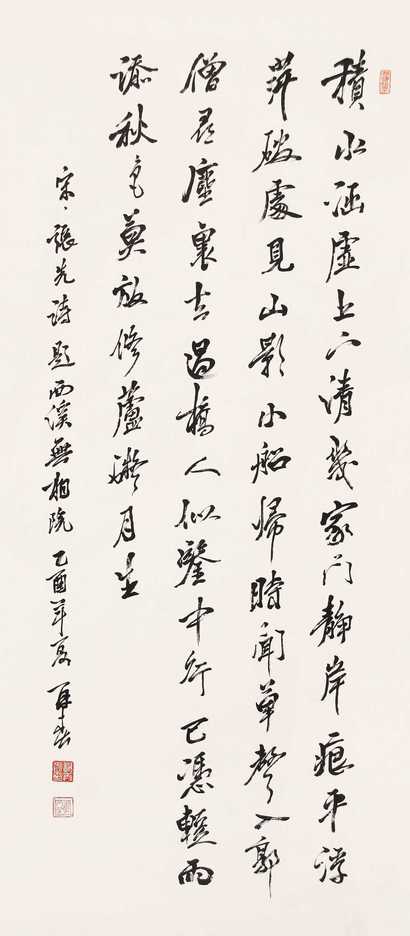 積水涵虛上下清幾家門靜岸痕平浮
萍破處見山影小船歸時聞草聲入郭
僧尋塵裏去過橋人似鑒中行已憑輕雨
添秋色莫放修蘆礙月生
宋、張先詩題西溪無相院乙酉年夏